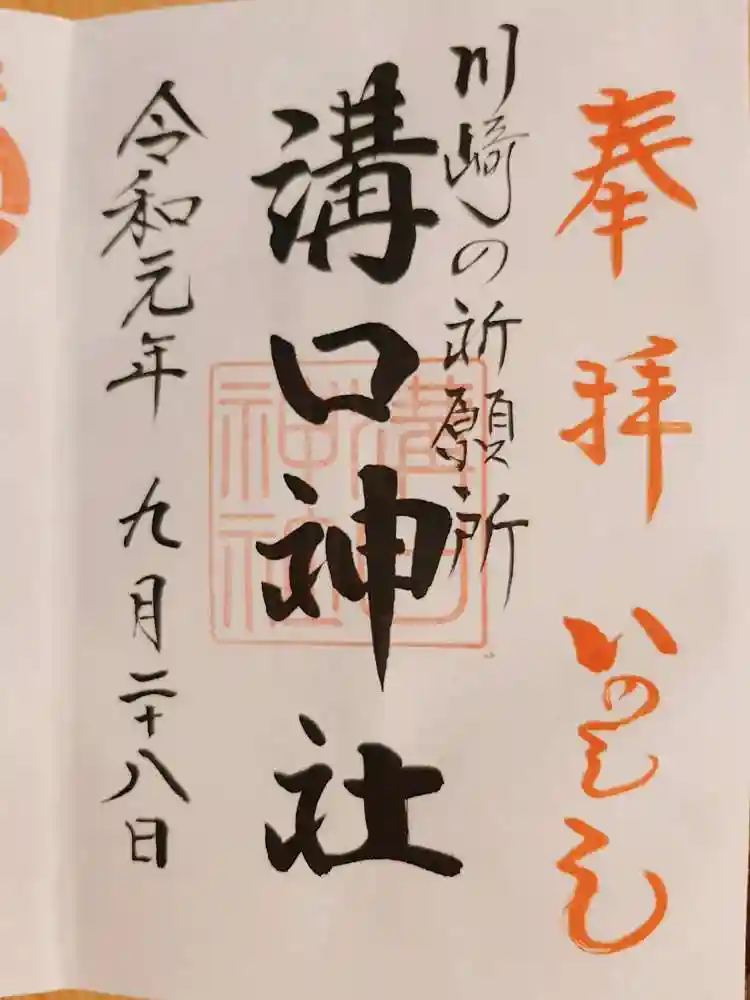 奉拝
川崎の祈願所
溝口神社
令和元年 九月二十八日
溝口
神社